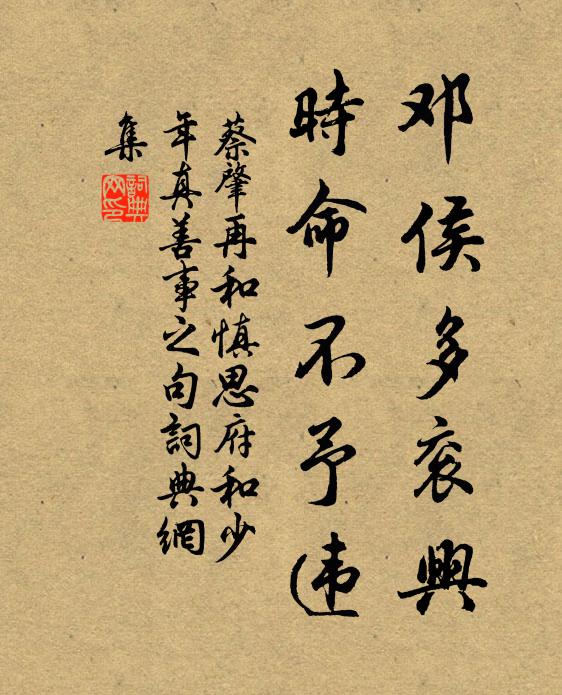 邓侯多衮興
時命不予违
蔡肇再和慎思府和少
年真善事之句詞典網
集
詞典
网印